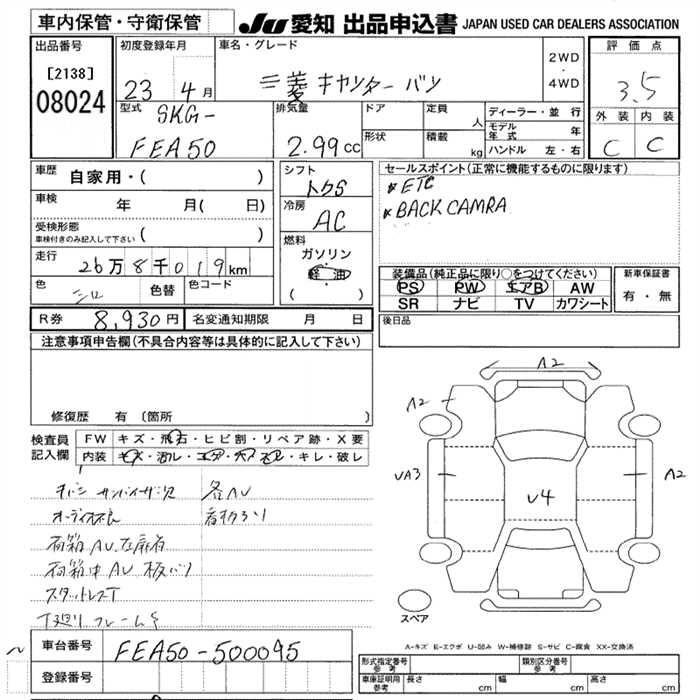 車内保管・守衛保管 JU 愛知 出品申込書 JAPAN USED CAR DEALERS ASSOCIATION
出品番号 初度登録年月 車名・グレード 評価点
[2138] 08024 23 4月 三菱 キャンター バン 2WD・4WD 3.5
型式 SKG-FEA50 排気量 2.99cc ドア 定員 人 ディーラー・並行 外装 内装
形状 積載 kg モデル年式 年 C C
ハンドル 左・右
車歴 自家用・( ) シフト セールスポイント(正常に機能するものに限ります)
車検 年 月( 日) 冷房 AC * ETC
受検形態 ( ) * BACK CAMRA
車検付きのみ記入して下さい
燃料 ガソリン 軽油 ( )
走行 26万8千019km
装備品(純正品に限り○をつけてください) 新車保証書
色 色替 色コード PS PW エアB AW 有・無
SR ナビ TV カワシート
R券 8,930円 名変通知期限 月 日 後日品
注意事項申告欄(不具合内容等は具体的に記入して下さい)
修復歴 有 (箇所 )
検査員記入欄 FW キズ・飛石・ヒビ割・リペア跡・X要
内装 キズ・汚レ・コゲ・穴・キレ・破レ
オーディオ不良
荷箱中AU
スタットレスT
A2
A2 A2
UA3 U4 A2
スペア
A-キズ E-エクボ U-凹み W-補修跡 S-サビ C-腐食 XX-交換済
車台番号 FEA50-500095
登録番号
形式指定番号 参考 類別区分番号 参考
車庫証明用 参考 長さ cm 幅 cm 高さ cm